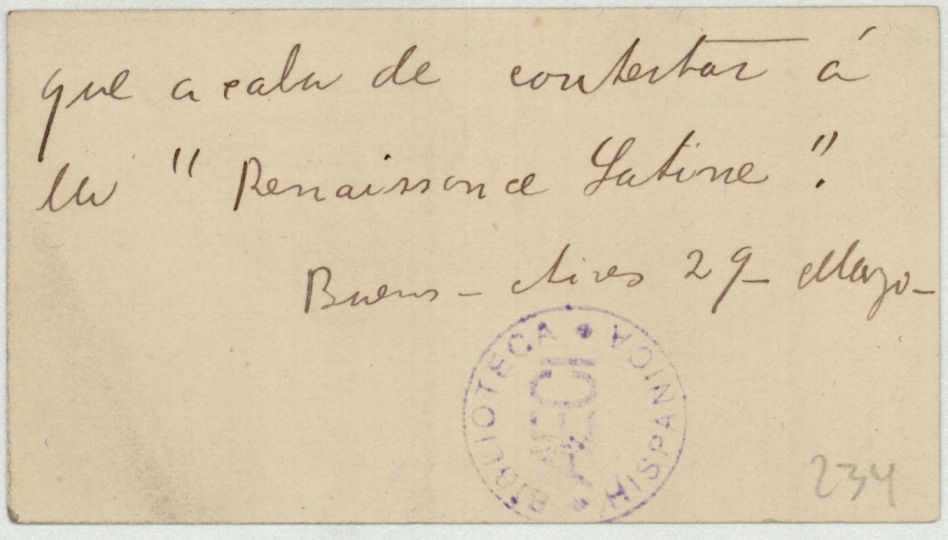 que acaba de contestar á
la "Renaissance Latine".
Buenos-Aires 29- Mayo-
BIBLIOTECA HISPANICA
AECI
234